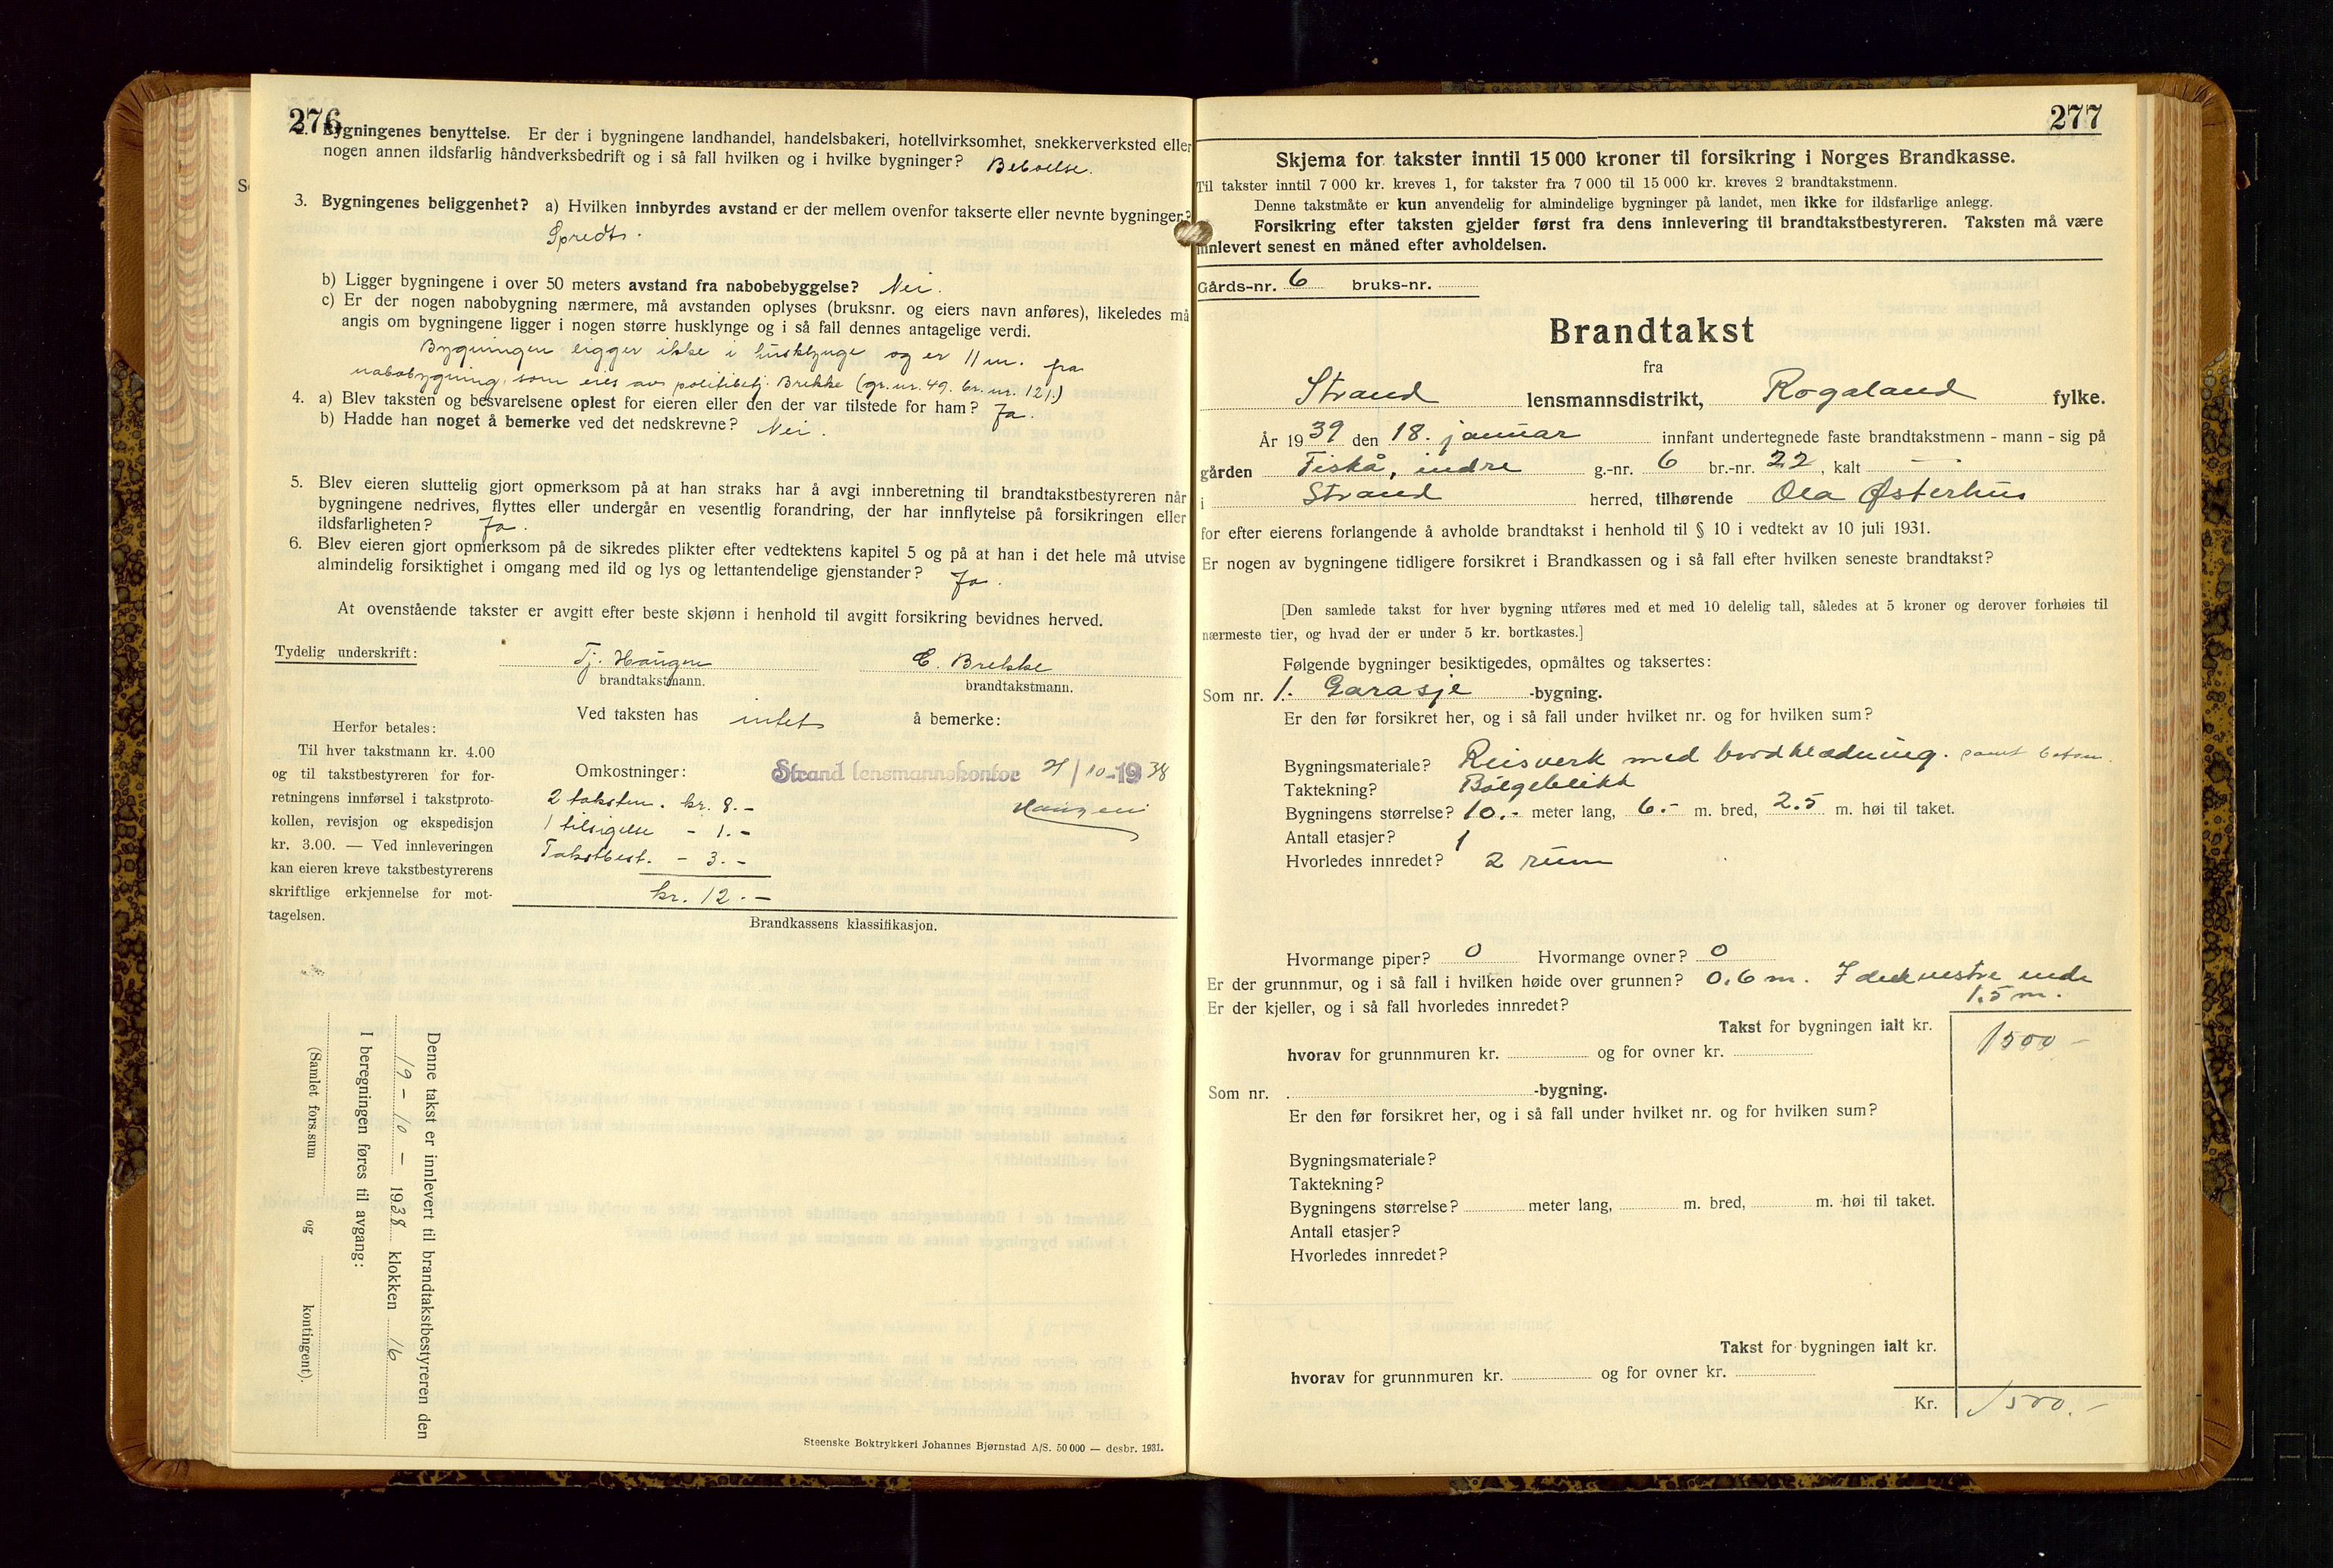 276
Bygningenes benyttelse. Er der i bygningene landhandel, handelsbakeri, hotellvirksomhet, snekkerverksted eller
nogen annen ildsfarlig håndverksbedrift og i så fall hvilken og i hvilke bygninger? Beboelse.
3. Bygningenes beliggenhet? a) Hvilken innbyrdes avstand er der mellem ovenfor takserte eller nevnte bygninger?
Spredt.
b) Ligger bygningene i over 50 meters avstand fra nabobebyggelse? Nei.
c) Er der nogen nabobygning nærmere, må avstanden oplyses (bruksnr. og eiers navn anføres), likeledes må
angis om bygningene ligger i nogen større husklynge og i så fall dennes antagelige verdi.
Bygningen ligger ikke i husklynge og er 11 m. fra
nabobygning, som eies av politibetj. Brekke (gr.nr. 49. br. nr. 121.)
4. a) Blev taksten og besvarelsene oplest for eieren eller den der var tilstede for ham? Ja.
b) Hadde han noget å bemerke ved det nedskrevne? Nei.
5. Blev eieren sluttelig gjort opmerksom på at han straks har å avgi innberetning til brandtakstbestyreren når
bygningene nedrives, flyttes eller undergår en vesentlig forandring, der har innflytelse på forsikringen eller
ildsfarligheten? Ja.
6. Blev eieren gjort opmerksom på de sikredes plikter efter vedtektens kapitel 5 og på at han i det hele må utvise
almindelig forsiktighet i omgang med ild og lys og lettantendelige gjenstander? Ja.
At ovenstående takster er avgitt efter beste skjønn i henhold til avgitt forsikring bevidnes herved.
Tydelig underskrift: Tj. Haugen E. Brekke
brandtakstmann. brandtakstmann.
Ved taksten has intet å bemerke:
Herfor betales:
Til hver takstmann kr. 4.00
og til takstbestyreren for for-
retningens innførsel i takstproto-
kollen, revisjon og ekspedisjon
kr. 3.00. — Ved innleveringen
kan eieren kreve takstbestyrerens
skriftlige erkjennelse for mot-
tagelsen.
Omkostninger:
2 takstm. kr. 8.-
1 tilsigelse - 1.-
Takstbest. - 3.-
kr. 12.-
Strand lensmannskontor 21/10-1938
Haugen
Brandkassens klassifikasjon.
Denne takst er innlevert til brandtakstbestyreren den
19 - 10 - 1938 klokken 16
I beregningen føres til avgang:
(Samlet fors.sum og kontingent).
Steenske Boktrykkeri Johannes Bjørnstad A/S. 50 000 — desbr. 1931.
277
Skjema for takster inntil 15 000 kroner til forsikring i Norges Brandkasse.
Til takster inntil 7 000 kr. kreves 1, for takster fra 7 000 til 15 000 kr. kreves 2 brandtakstmenn.
Denne takstmåte er kun anvendelig for almindelige bygninger på landet, men ikke for ildsfarlige anlegg.
Forsikring efter taksten gjelder først fra dens innlevering til brandtakstbestyreren. Taksten må være
innlevert senest en måned efter avholdelsen.
Gårds-nr. 6 bruks-nr.
Brandtakst
fra
Strand lensmannsdistrikt, Rogaland fylke.
År 1939 den 18. januar innfant undertegnede faste brandtakstmenn - mann - sig på
gården Fiskå, indre g.-nr. 6 br.-nr. 22, kalt —
i Strand herred, tilhørende Ola Østerhus
for efter eierens forlangende å avholde brandtakst i henhold til § 10 i vedtekt av 10 juli 1931.
Er nogen av bygningene tidligere forsikret i Brandkassen og i så fall efter hvilken seneste brandtakst?
[Den samlede takst for hver bygning utføres med et med 10 delelig tall, således at 5 kroner og derover forhøies til
nærmeste tier, og hvad der er under 5 kr. bortkastes.]
Følgende bygninger besiktigedes, opmåltes og taksertes:
Som nr. 1. Garasje -bygning.
Er den før forsikret her, og i så fall under hvilket nr. og for hvilken sum?
Bygningsmateriale? Reisverk med bordklædning. samt betom.
Taktekning? Bølgeblikk
Bygningens størrelse? 10.- meter lang, 6.- m. bred, 2.5 m. høi til taket.
Antall etasjer? 1
Hvorledes innredet? 2 rum
Hvormange piper? 0 Hvormange ovner? 0
Er der grunnmur, og i så fall i hvilken høide over grunnen? 0.6 m. I den vestre ende
1.5 m.
Er der kjeller, og i så fall hvorledes innredet?
Takst for bygningen ialt kr. 1500 -
hvorav for grunnmuren kr. og for ovner kr.
Som nr. -bygning.
Er den før forsikret her, og i så fall under hvilket nr. og for hvilken sum?
Bygningsmateriale?
Taktekning?
Bygningens størrelse? meter lang, m. bred, m. høi til taket.
Antall etasjer?
Hvorledes innredet?
Takst for bygningen ialt kr.
hvorav for grunnmuren kr. og for ovner kr.
Kr. 1500.-